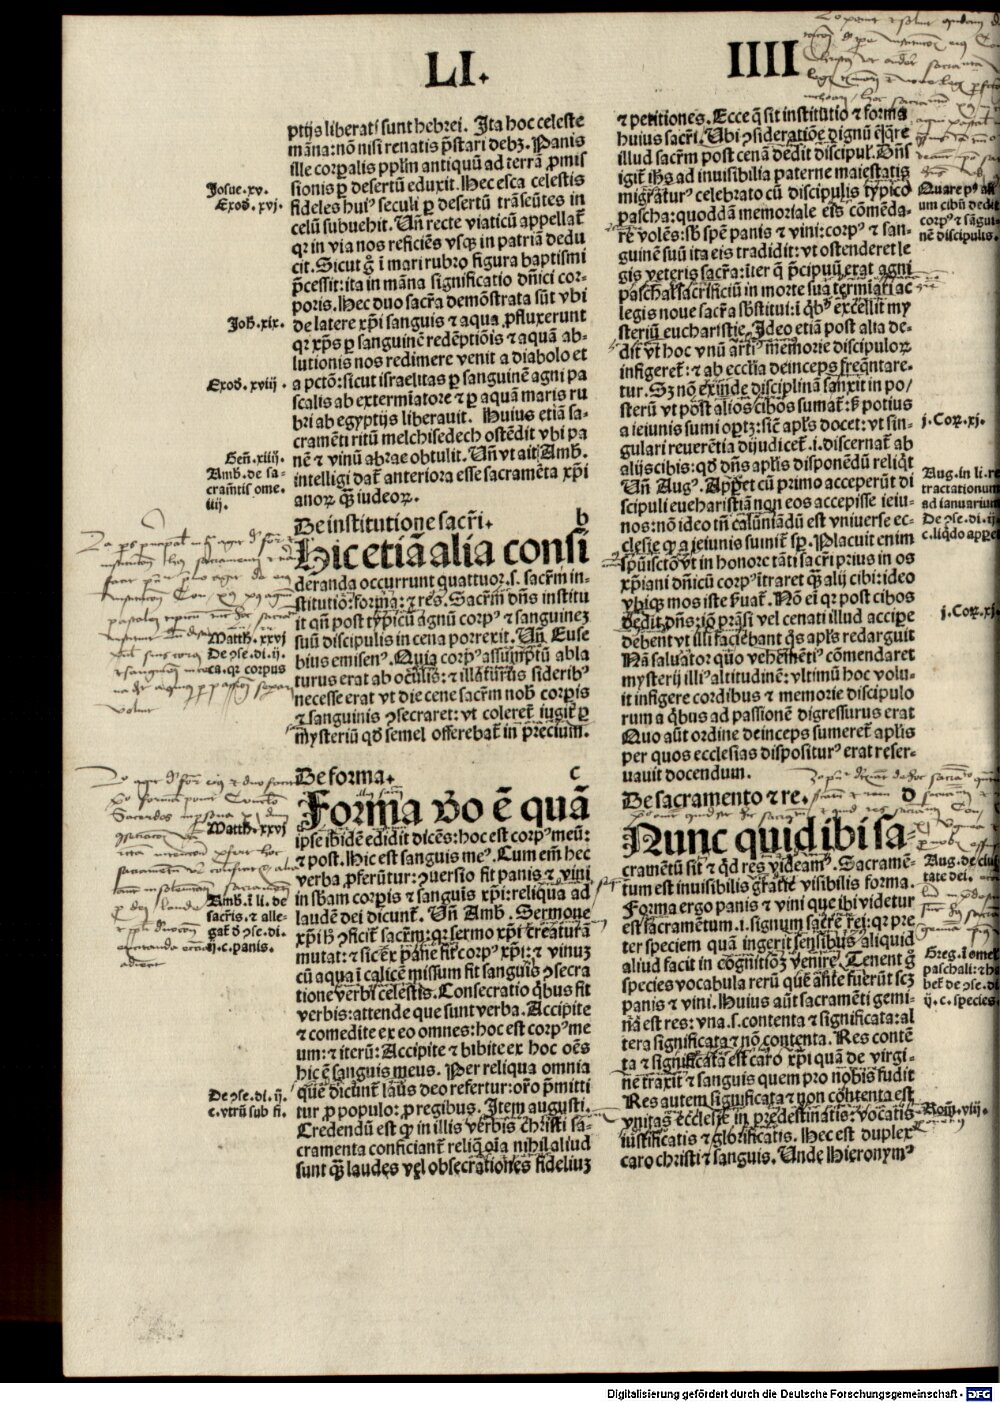 LI.
IIII
ptijs liberati sunt hebrei. Ita hoc celeste
māna: nō nisi renatis p̄stari debꝫ. Panis
ille corꝑalis pplm̄ antiquū ad terrā ꝓmis
sionis ꝑ desertū eduxit. Hec esca celestis
fideles huiꝰ seculi ꝑ desertū trāseūtes in
celū subuehit. Un̄ recte viaticū appellat̄
qꝛ in via nos reficiēs vsqꝫ in patriā dedu
cit. Sicut g̊ i mari rubro figura baptismi
p̄cessit: ita in māna significatio dn̄ici cor-
poris. Hec duo sacr̄a demōstrata sūt vbi
de latere xp̄i sanguis ⁊ aqua ꝓfluxerunt
qꝛ xp̄s ꝑ sanguinē redēptiōis ⁊ aquā ab-
lutionis nos redimere venit a diabolo et
a pctō: sicut israelitas ꝑ sanguinē agni pa
scalis ab extermīatore ⁊ ꝑ aquā maris ru
bri ab egyptijs liberauit. Huius etiā sa-
cramēti ritū melchisedech ostēdit vbi pa
nē ⁊ vinū abrae obtulit. Un̄ vt ait Amb.
intelligi dat̄ anteriora esse sacramēta xp̄i
anoꝝ qꝫ iudeoꝝ.
Josue.xv.
Exod.xvj.
Joh.xix.
Exod.xviij.
Gen̄.xiiij.
Amb.de sa-
cramētis ome.
iiij.
De institutione sacr̄i. b
Hic etiā alia consi
deranda occurrunt quattuor.s. sacr̄m in-
stitutiō: forma: ⁊ res. Sacr̄m dn̄s institu
it qn̄ post typicū agnū corpꝰ ⁊ sanguinez
suū discipulis in cena porrexit. Un̄ Euse
bius emisen̄. Quia corpꝰ assumptū abla
turus erat ab oculis: ⁊ illaturus sideribꝰ
necesse erat vt die cene sacr̄m nob̄ corꝑis
⁊ sanguinis ꝯsecraret: vt coleret̄ iugit̄ ꝑ
mysteriū qd̄ semel offerebat̄ in precium.
Matth.xxvj
De ꝯse.di.ij.
ca.qꝛ corpus
De forma. c
Forma v̄o ē quā
ipse ibidē edidit dicēs: hoc est corpꝰ meū:
⁊ post. Hic est sanguis meꝰ. Cum em̄ hec
verba ꝓferūtur: ꝯuersio fit panis ⁊ vini
in sb̄am corꝑis ⁊ sanguīs xp̄i: reliqua ad
laudē dei dicunt̄. Un̄ Amb. Sermone
xp̄i h̄ ꝯficit̄ sacr̄m: qꝛ sermo xp̄i creaturā
mutat: ⁊ sic ex pane fit corpꝰ xp̄i: ⁊ vinuꝫ
cū aqua i calicē missum fit sanguis ꝯsecra
tione verbi celestis. Consecratio qͥbus fit
verbis: attende que sunt verba. Accipite
⁊ comedite ex eo omnes: hoc est corpꝰ me
um: ⁊ iterū: Accipite ⁊ bibite ex hoc oēs
hic ē sanguis meus. Per reliqua omnia
que dicunt̄ laus deo refertur: or̄o p̄mitti
tur ꝓ populo: ꝓ regibus. Item augusti.
Credendū est ꝙ in illis verbis christi sa-
cramenta conficiant̄ reliq̄ oīa nihil aliud
sunt qꝫ laudes vel obsecrationes fideliuꝫ
Matth.xxvj
Amb.ī li.de
sacr̄is.⁊ alle-
gat̄ d̄ ꝯse.di.
ij.c.panis.
De ꝯse.di.ij.
c.vtrū sub fi.
⁊ petitiones. Ecce q̄ sit institutio ⁊ forma
huius sacr̄i. Ubi ꝯsideratiōe dignū ē: qͣre
illud sacr̄m post cenā dedit discipul̄. Dn̄s
igit̄ ih̄s ad inuisibilia paterne maiestatis
migraturꝰ celebrato cū discipulis typico
pascha: quoddā memoriale eis cōmēda-
re volēs: sb̄ spē panis ⁊ vini: corpꝰ ⁊ san-
guinē suū ita eis tradidit: vt ostenderet le
gis veteris sacr̄a: īter q̄ p̄cipuū erat agni
paschal̄ sacrificiū in morte sua termīari ac
legis noue sacr̄a sb̄stitui: ī qͥbꝰ excellit my
steriū eucharistie. Ideo etiā post alia de-
dit vt hoc vnū artiꝰ memorie discipuloꝝ
infigeret̄: ⁊ ab ecclīa deinceps freq̄ntare.
tur. Sꝫ nō exinde disciplinā sanxit in po/
sterū vt post alios cibos sumat̄: sꝫ potius
a ieiunis sumi oportꝫ: sic̄ apl̄s docet: vt sin-
gulari reuerētia dijudicet̄.i.discernat̄ ab
alijs cibis: qd̄ dn̄s apl̄is disponēdū reliq̄t
Un̄ Augꝰ. Apparet cū primo acceperūt di
scipuli eucharistiā non eos accepisse ieiu-
nos: nō ideo tn̄ calūniādū est vniuerse ec-
clesie ꝙ a ieiunis sumit̄ sp̄. Placuit enim
sp̄uisctō vt in honorē tāti sacr̄i prius in os
xp̄iani dn̄icū corpꝰ ītraret qꝫ alij cibi: ideo
vbiqꝫ mos iste ẜuat̄. Nō ei qꝛ post cibos
dedit dn̄s: iō prāsi vel cenati illud accipe
debent vt illi faciebant qͦs apl̄s redarguit
Nā saluator quo vehemētiꝰ cōmendaret
mysterij illiꝰ altitudinē: vltimū hoc volu-
it infigere cordibus ⁊ memorie discipulo
rum a qͥbus ad passionē digressurus erat
Quo aūt ordine deinceps sumeret̄ apl̄is
per quos ecclesias dispositurꝰ erat reser-
uauit docendum.
Quare pꝰ ali
um cibū dedit
corpꝰ ⁊ sāgui-
nē discipulis.
j.Coꝝ.xj.
Aug.in li.re
tractationum
ad ianuarium
De ꝯse.di.ij
c.liq̄do appet
j.Coꝝ.xj.
De sacramento ⁊ re. d
Nunc quid ibi sa-
cramētū sit ⁊ qͥd res videamꝰ. Sacramē-
tum est inuisibilis gratie visibilis forma.
Forma ergo panis ⁊ vini que ibi videtur
est sacramētum.i.signum sacre rei: qꝛ pre
ter speciem quā ingerit sensibus aliquid
aliud facit in cognitiōꝫ venire. Tenent g̊
species vocabula rerū que ante fuerūt scꝫ
panis ⁊ vini. Huius aūt sacramēti gemi-
na est res: vna.s.contenta ⁊ significata: al
tera significata ⁊ nō contenta. Res contē
ta ⁊ significata est caro xp̄i quā de virgi-
ne traxit ⁊ sanguis quem pro nobis fudit
Res autem significata ⁊ non contenta est
vnitas ecclesie in predestinatis: vocatis
iustificatis ⁊ glorificatis. Hec est duplex
caro christi ⁊ sanguis. Unde Hieronymꝰ
Aug.de ciui
tate dei.
Greg.ī omel
paschali: ⁊ ha
bet̄ de ꝯse.di
ij.c.species.
Rom̄.viij.
Digitalisierung gefördert durch die Deutsche Forschungsgemeinschaft - DFG